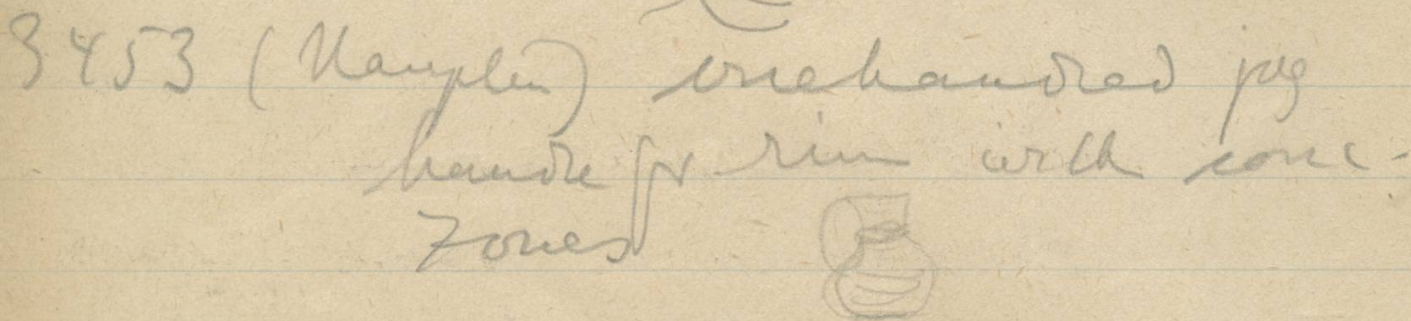 3453 (Nauplia) onehandled jug
handle fr rim with conc.
zones